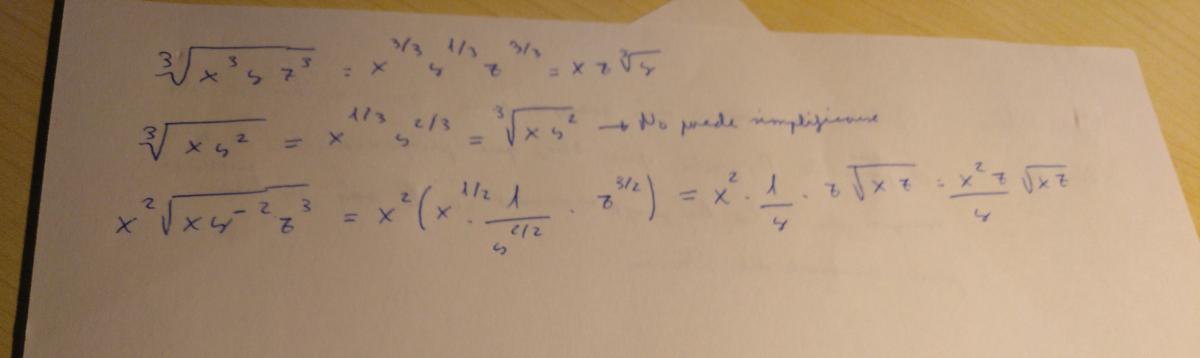 ∛(x³ y z³) = x^{3/3} y^{1/3} z^{3/3} = x z ∛y
∛(x y²) = x^{1/3} y^{2/3} = ∛(x y²) → No puede simplificarse
x² √(x y⁻² z³) = x² (x^{1/2} · 1/y^{2/2} · z^{3/2}) = x² · 1/y · z √(x z) = (x² z)/y √(x z)